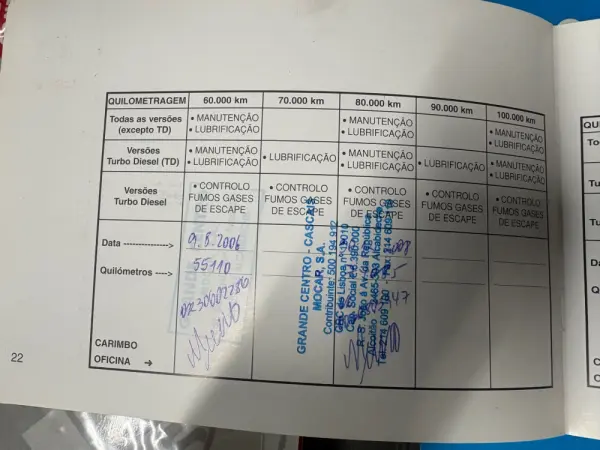 QUILOMETRAGEM 60.000 km 70.000 km 80.000 km 90.000 km 100.000 km
Todas as versões
(excepto TD)
• MANUTENÇÃO
• LUBRIFICAÇÃO
• MANUTENÇÃO
• LUBRIFICAÇÃO
• MANUTENÇÃO
• LUBRIFICAÇÃO
Versões
Turbo Diesel (TD)
• MANUTENÇÃO
• LUBRIFICAÇÃO
• LUBRIFICAÇÃO
• MANUTENÇÃO
• LUBRIFICAÇÃO
• LUBRIFICAÇÃO
• MANUTENÇÃO
• LUBRIFICAÇÃO
Versões
Turbo Diesel
• CONTROLO
FUMOS GASES
DE ESCAPE
• CONTROLO
FUMOS GASES
DE ESCAPE
• CONTROLO
FUMOS GASES
DE ESCAPE
• CONTROLO
FUMOS GASES
DE ESCAPE
• CONTROLO
FUMOS GASES
DE ESCAPE
Data ---------------> 9.5.2006
Quilómetros ----> 55110
CARIMBO
OFICINA →
GRANDE CENTRO - CASCAIS
MOCAR, S.A.
Contribuinte: 500 194 912
22
QUI
To
Tu
Tu
Da
Q
C